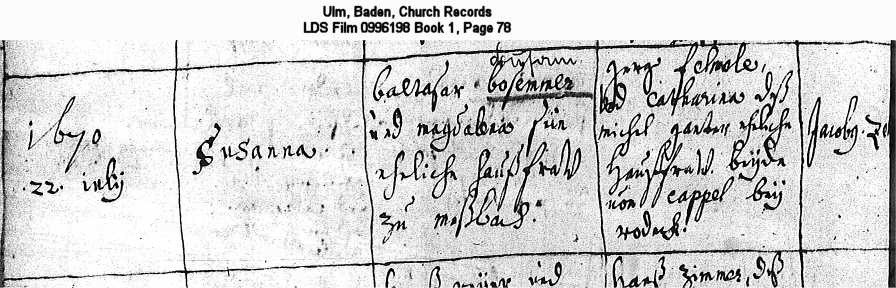 Ulm, Baden, Church Records
LDS Film 0996198 Book 1, Page 78
1670
22. iulÿ
Susanna
baltasar bosemmer
und magdalena sün
eheliche haußfraw
zu meßbach.
Jerg schole,
und catharina deß
michel ganter eheliche
haußfraw. beÿde
von cappel beÿ
rodeck.
Jacoby.
und
hanß zimmer, deß